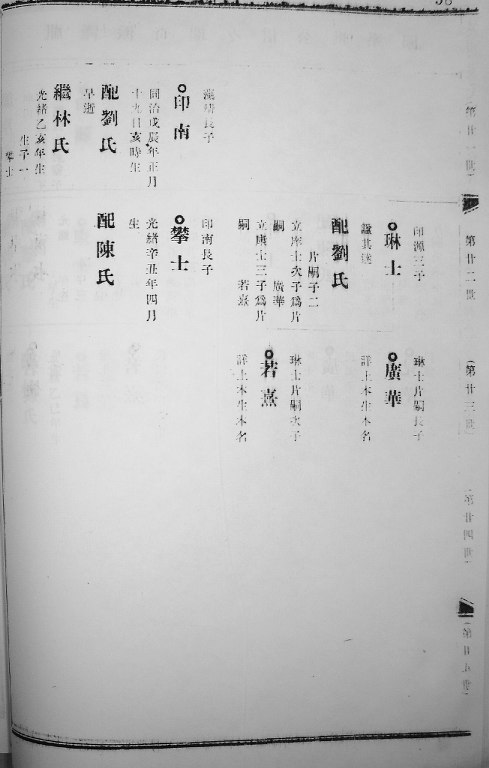 第廿一世
第廿二世
第廿三世
第廿四世
印南
同治戊辰年正月
十九日亥時生
配劉氏
早逝
繼林氏
光緒乙亥年生
生子一
攀士
印源三子
琳士
配劉氏
片嗣子二
立庠士次子爲片
嗣 廣華
立庚士三子爲片
嗣 若熹
印南長子
攀士
光緒辛丑年四月
生
配陳氏
琳士片嗣長子
廣華
詳上本生本名
琳士片嗣次子
若熹
詳上本生本名